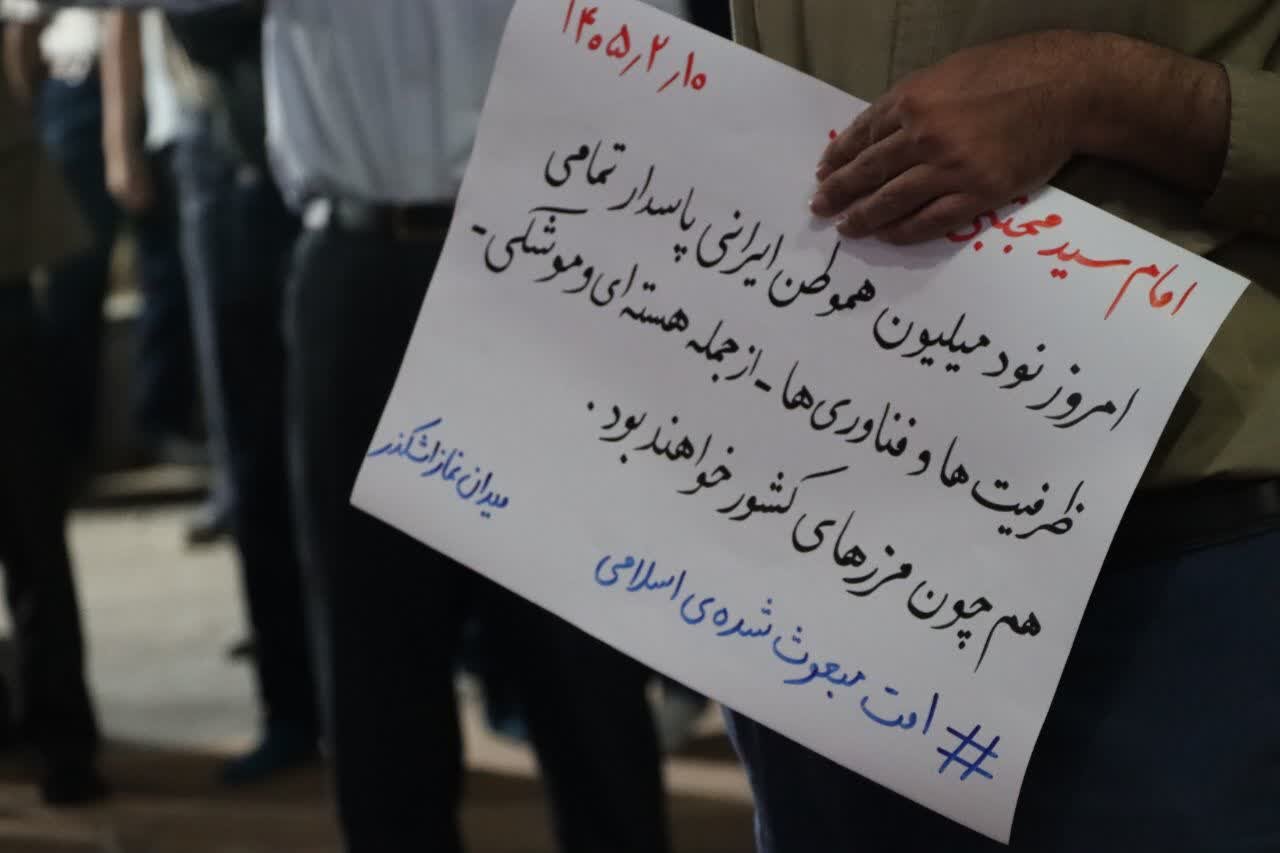 ۱۴۰۵٫۲٫۱۰
امام سید مجتبی
امروز نود میلیون هموطن ایرانی پاسدار تمامی
ظرفیت ها و فناوری ها - از جمله هسته ای و موشکی -
هم چون مرزهای کشور خواهند بود.
# امت مبعوث شده ی اسلامی
میدان نماز اشکذر